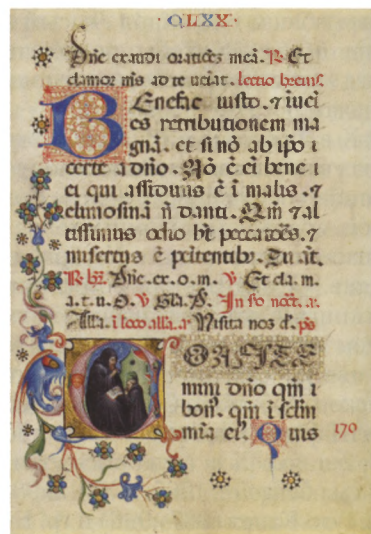 · QLXX ·
Dn̄e exaudi oratiōez meā. R̵ Et
clamor m̄s ad te ueīat. lectio breuis
Benefac iusto. ⁊ īuēi
es retributionem ma
gnā. et si nō ab ip̄o i
certe a dn̄o. Nō ē eī bene i
ei qui assiduus ē ī malis. ⁊
elimosinā n̄ danti. Qm̄ ⁊ al
tissimus odio ht̄ peccatōes. ⁊
misertus ē penitentibꝫ. Tu aūt.
Dn̄e. ex. o. m. v Et cla. m.
a. t. u. O. v Gla. P. In
Alla. ī loco alla. aͬ Visita nos d̄. ps
ONFITE
mini dn̄o qm̄ i
bon᷒. qm̄ ī sc̄lm
mīa ei᷒. Quis
170